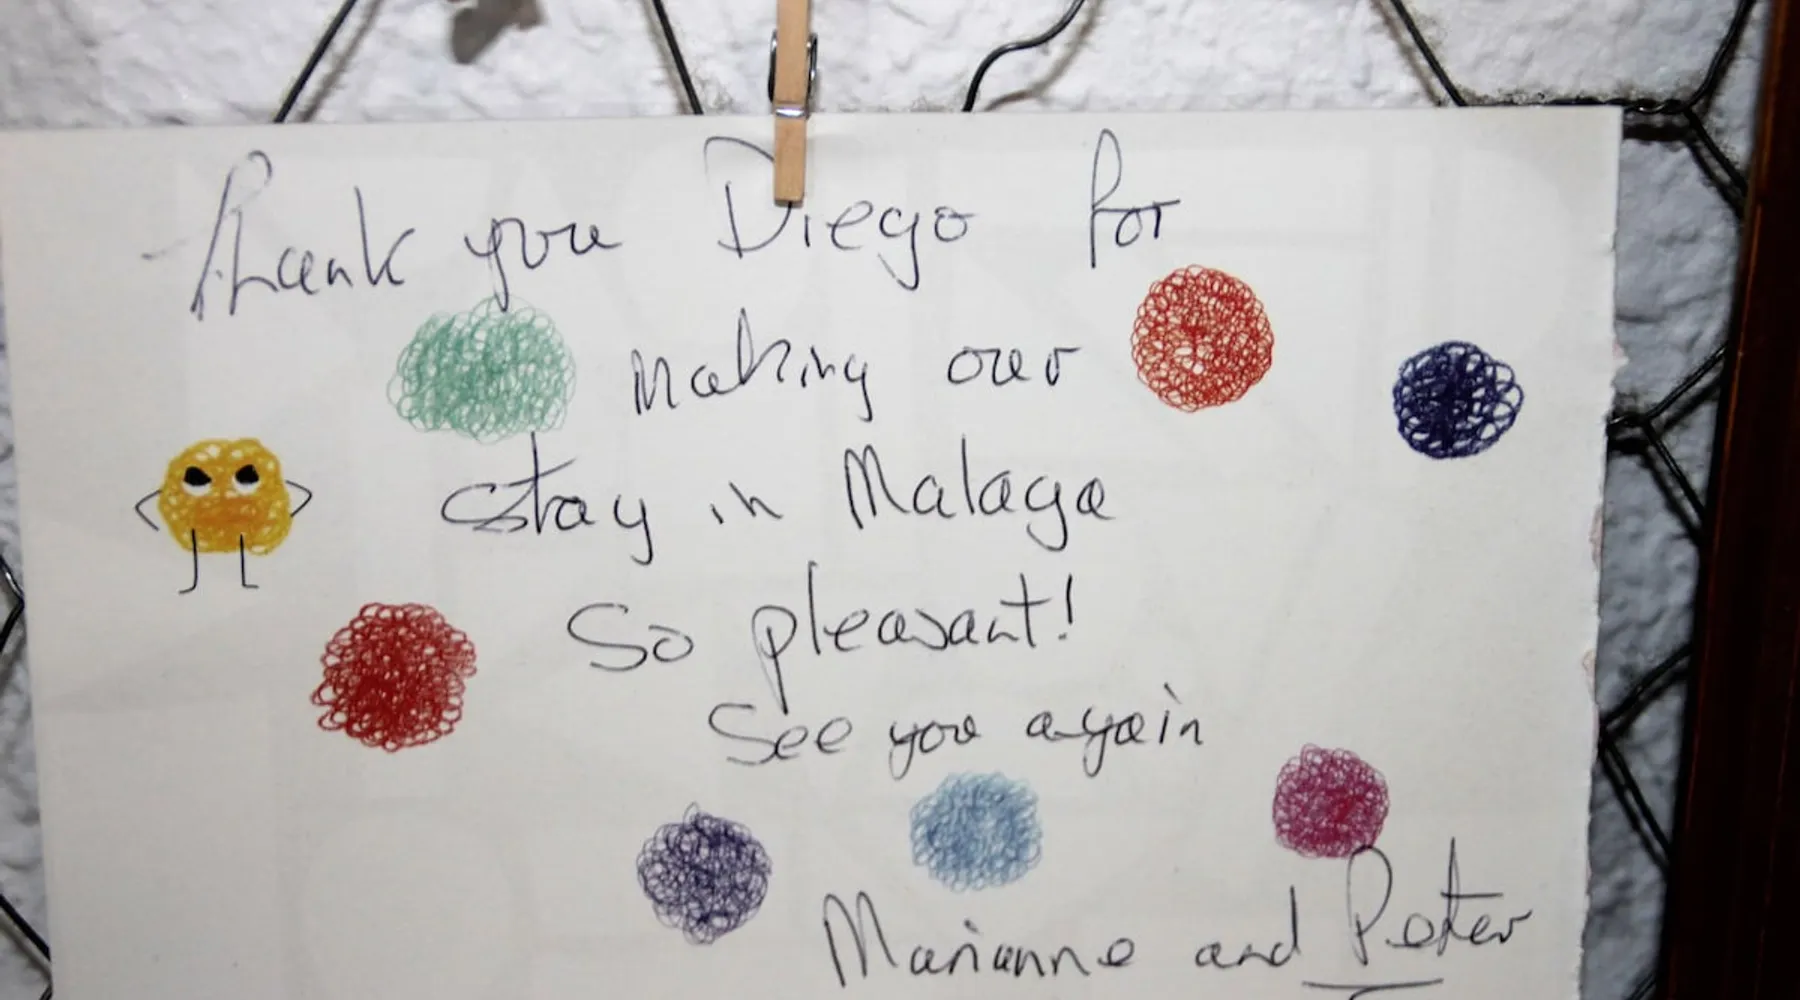 Thank you Diego for
making our
stay in Malaga
so pleasant!
See you again
Marianne and Peter